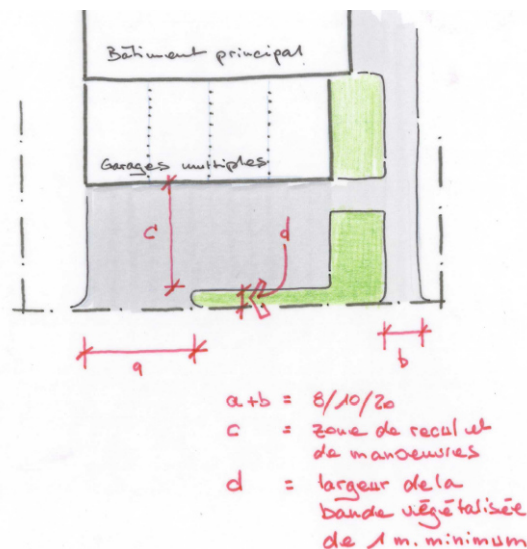 Bâtiment principal
Garages multiples
c
d
a
b
a+b = 8/10/20
c = zone de recul et
de manoeuvres
d = largeur de la
bande végétalisée
de 1 m. minimum